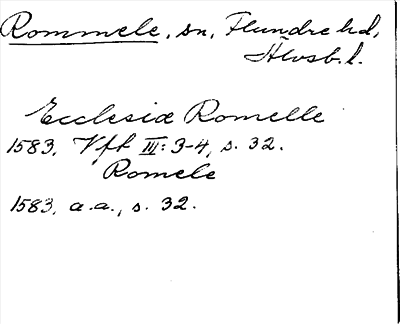 Rommele, sn, Flundre hd,
Älvsb. l.
Ecclesiæ Romelle
1583, Vft III: 3-4, s. 32.
Romele
1583, a.a., s. 32.